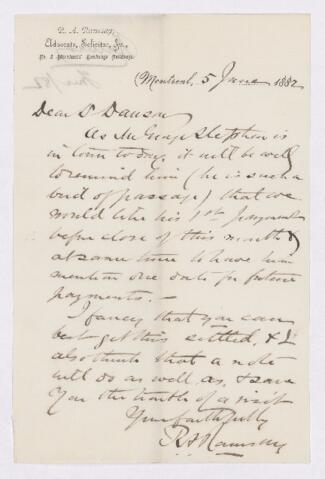 R. A. Ramsay,
Advocate, Solicitor, &c.,
No. 2 Merchants' Exchange Buildings.
Montreal, 5 June 1882
Dear Dr Dawson
As Mr George Stephen is
in town to day, it will be well
to remind him (he is such a
bird of passage) that we
would like his 1st payment
before close of this month &
at same time to have him
mention one date for future
payments. —
I fancy that you can
best get this settled, & I
also think that a note
will do as well, as, & save
you the trouble of a visit
Yours faithfully
R A Ramsay